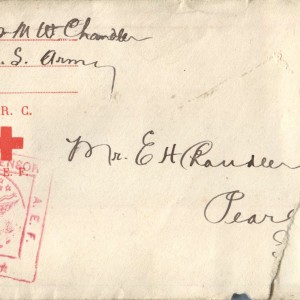 M W Chandler
. S. Army
R. C.
E. F.
ENSOR
A.E.F.
Mr. E H Chandler
Pear